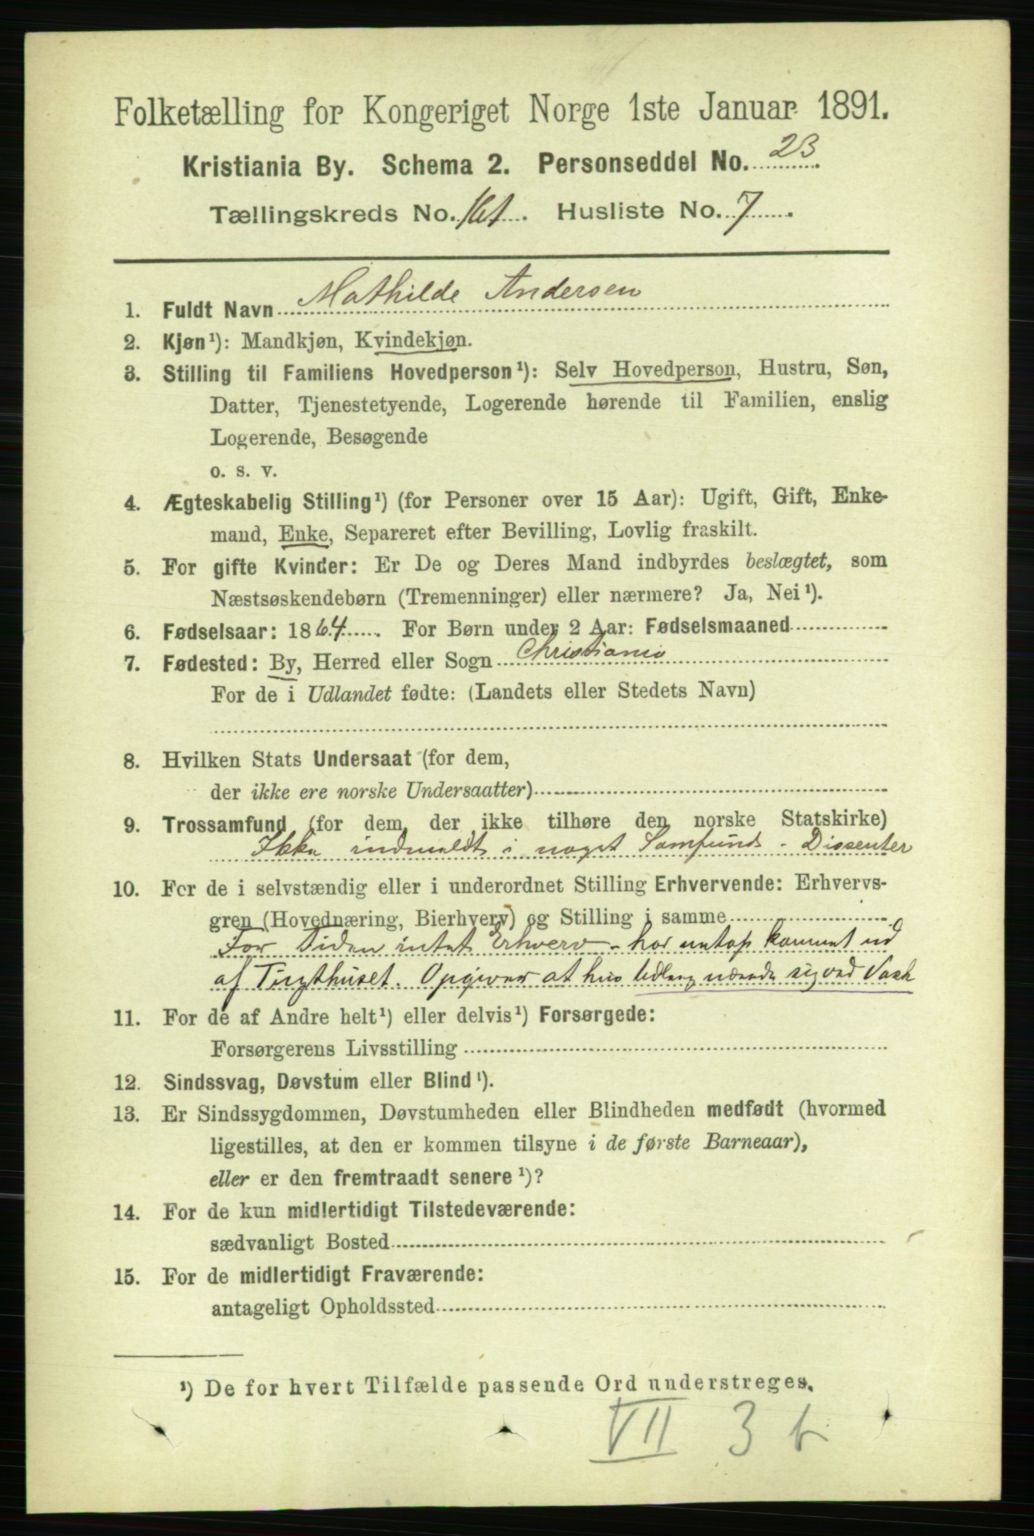 Folketælling for Kongeriget Norge 1ste Januar 1891.
Kristiania By. Schema 2. Personseddel No. 23.
Tællingskreds No. 161. Husliste No. 7.
1. Fuldt Navn Mathilde Andersen
2. Kjøn¹): Mandkjøn, Kvindekjøn.
3. Stilling til Familiens Hovedperson¹): Selv Hovedperson, Hustru, Søn,
Datter, Tjenestetyende, Logerende hørende til Familien, enslig
Logerende, Besøgende
o. s. v.
4. Ægteskabelig Stilling¹) (for Personer over 15 Aar): Ugift, Gift, Enke-
mand, Enke, Separeret efter Bevilling, Lovlig fraskilt.
5. For gifte Kvinder: Er De og Deres Mand indbyrdes beslægtet, som
Næstsøskendebørn (Tremenninger) eller nærmere? Ja, Nei¹).
6. Fødselsaar: 1864. For Børn under 2 Aar: Fødselsmaaned
7. Fødested: By, Herred eller Sogn Christiania
For de i Udlandet fødte: (Landets eller Stedets Navn)
8. Hvilken Stats Undersaat (for dem,
der ikke ere norske Undersaatter)
9. Trossamfund (for dem, der ikke tilhøre den norske Statskirke)
Ikke indmeldt i noget Samfund - Dissenter
10. For de i selvstændig eller i underordnet Stilling Erhvervende: Erhvervs-
gren (Hovednæring, Bierhverv) og Stilling i samme
For Tiden intet Erhverv - har netop kommet ud
af Tugthuset. Opgiver at hun nærede sig ved Vask
11. For de af Andre helt¹) eller delvis¹) Forsørgede:
Forsørgerens Livsstilling
12. Sindssvag, Døvstum eller Blind¹).
13. Er Sindssygdommen, Døvstumheden eller Blindheden medfødt (hvormed
ligestilles, at den er kommen tilsyne i de første Barneaar),
eller er den fremtraadt senere¹)?
14. For de kun midlertidigt Tilstedeværende:
sædvanligt Bosted
15. For de midlertidigt Fraværende:
antageligt Opholdssted
¹) De for hvert Tilfælde passende Ord understreges.
VII 3 b